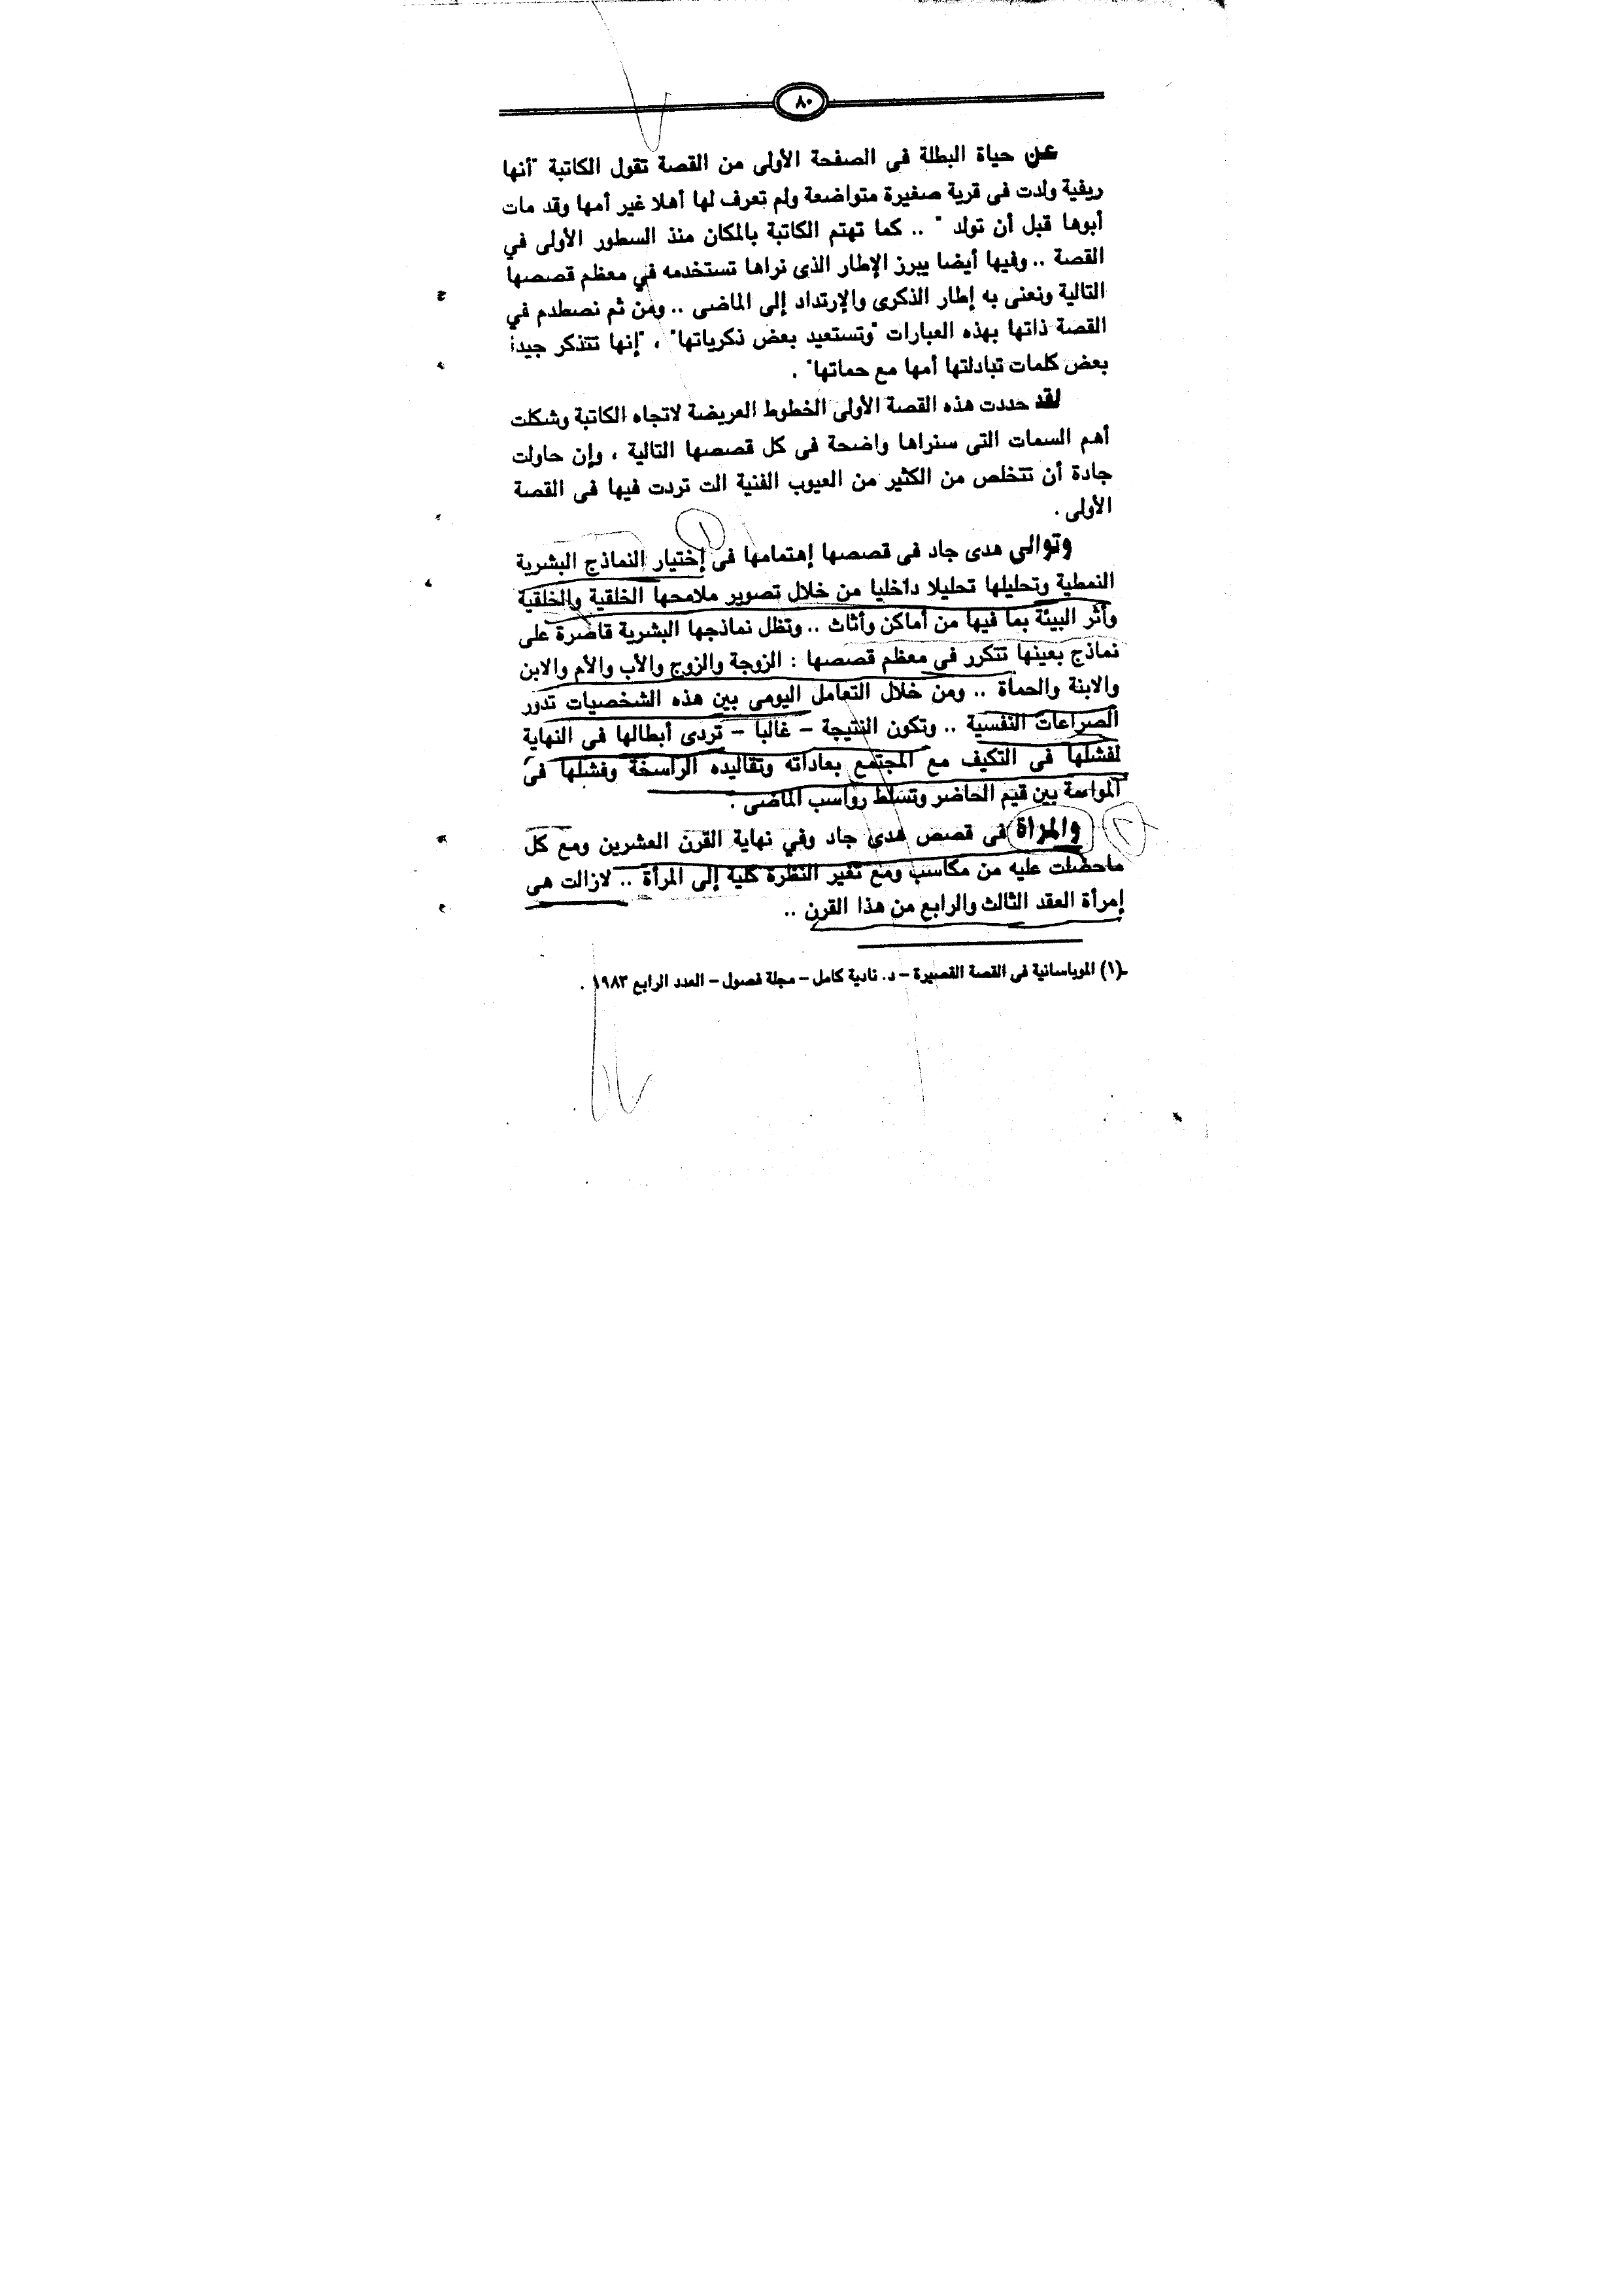 ٨٠
عن حياة البطلة فى الصفحة الأولى من القصة تقول الكاتبة "أنها
ريفية ولدت فى قرية صغيرة متواضعة ولم تعرف لها أهلا غير أمها وقد مات
أبوها قبل أن تولد " .. كما تهتم الكاتبة بالمكان منذ السطور الأولى في
القصة .. وفيها أيضا يبرز الإطار الذى نراها تستخدمه في معظم قصصها
التالية ونعنى به إطار الذكرى والإرتداد إلى الماضى .. ومن ثم نصطدم في
القصة ذاتها بهذه العبارات "وتستعيد بعض ذكرياتها" ، "إنها تتذكر جيدا
بعض كلمات تبادلتها أمها مع حماتها" .
لقد حددت هذه القصة الأولى الخطوط العريضة لاتجاه الكاتبة وشكلت
أهم السمات التى سنراها واضحة فى كل قصصها التالية ، وإن حاولت
جادة أن تتخلص من الكثير من العيوب الفنية الت تردت فيها فى القصة
الأولى .
وتوالى هدى جاد فى قصصها إهتمامها فى إختيار النماذج البشرية
النمطية وتحليلها تحليلا داخليا من خلال تصوير ملامحها الخلقية والخلقية
وأثر البيئة بما فيها من أماكن وأثاث .. وتظل نماذجها البشرية قاصرة على
نماذج بعينها تتكرر في معظم قصصها : الزوجة والزوج والأب والأم والابن
والابنة والحماة .. ومن خلال التعامل اليومى بين هذه الشخصيات تدور
الصراعات النفسية .. وتكون النتيجة – غالبا – تردى أبطالها فى النهاية
لفشلها فى التكيف مع المجتمع بعاداته وتقاليده الراسخة وفشلها فى
المواءمة بين قيم الحاضر وتسلط رواسب الماضى .
والمرأة فى قصص هدى جاد وفي نهاية القرن العشرين ومع كل
ماحصلت عليه من مكاسب ومع تغير النظرة كلية إلى المرأة .. لازالت هى
إمرأة العقد الثالث والرابع من هذا القرن ..
(١) الموباسانية فى القصة القصيرة – د. نادية كامل – مجلة فصول – العدد الرابع ١٩٨٣ .